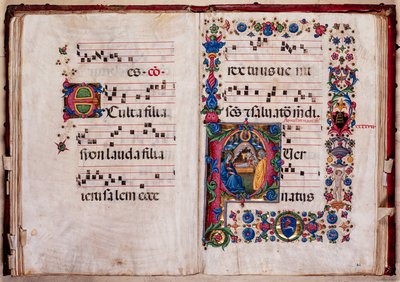 es. cō
Exulta filia
syon lauda filia
ierusalem ecce
rex tuus ue nit
sc̄s ⁊ saluatō mdi.
Puer
natus